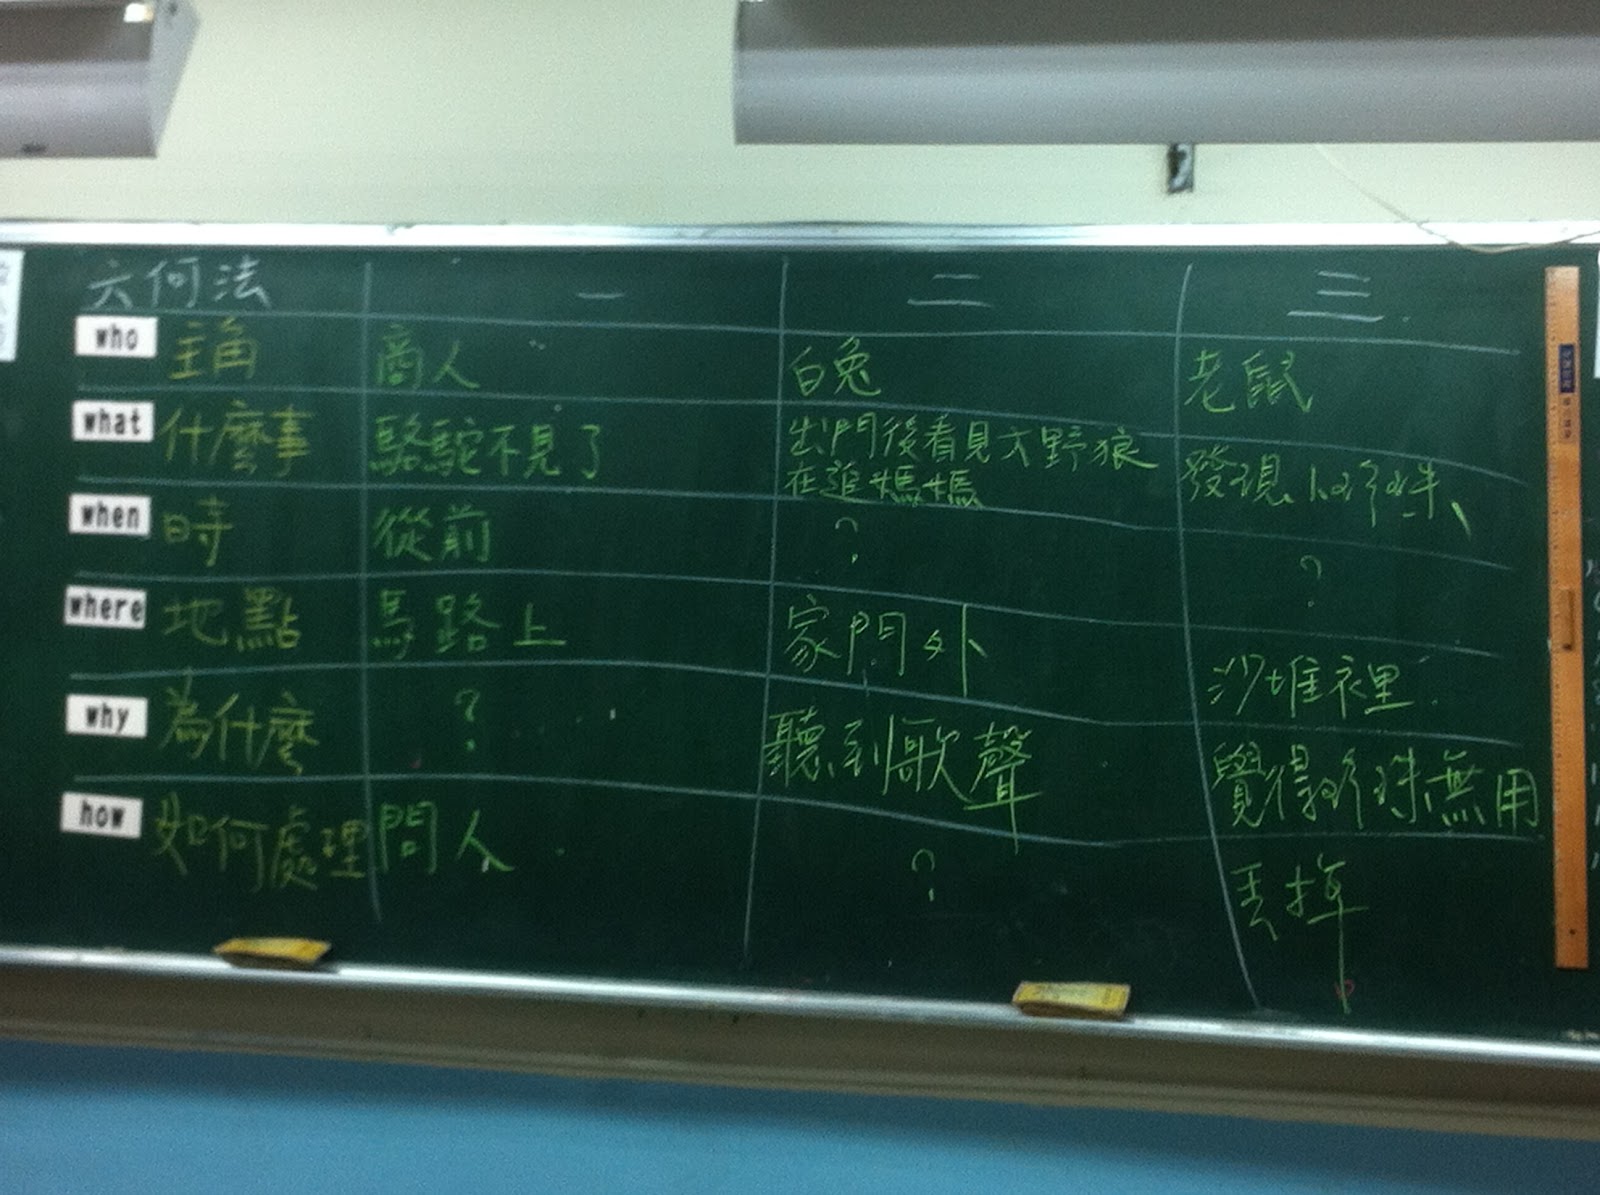 六何法 一 二 三
who 主角 商人 白兔 老鼠
what 什麼事 駱駝不見了 出門後看見大野狼
在追媽媽 發現小珍珠
when 時 從前 ? ?
where 地點 馬路上 家門外 沙堆裡
why 為什麼 ? 聽到歌聲 覺得珍珠無用
how 如何處理 問人 ? 丟掉